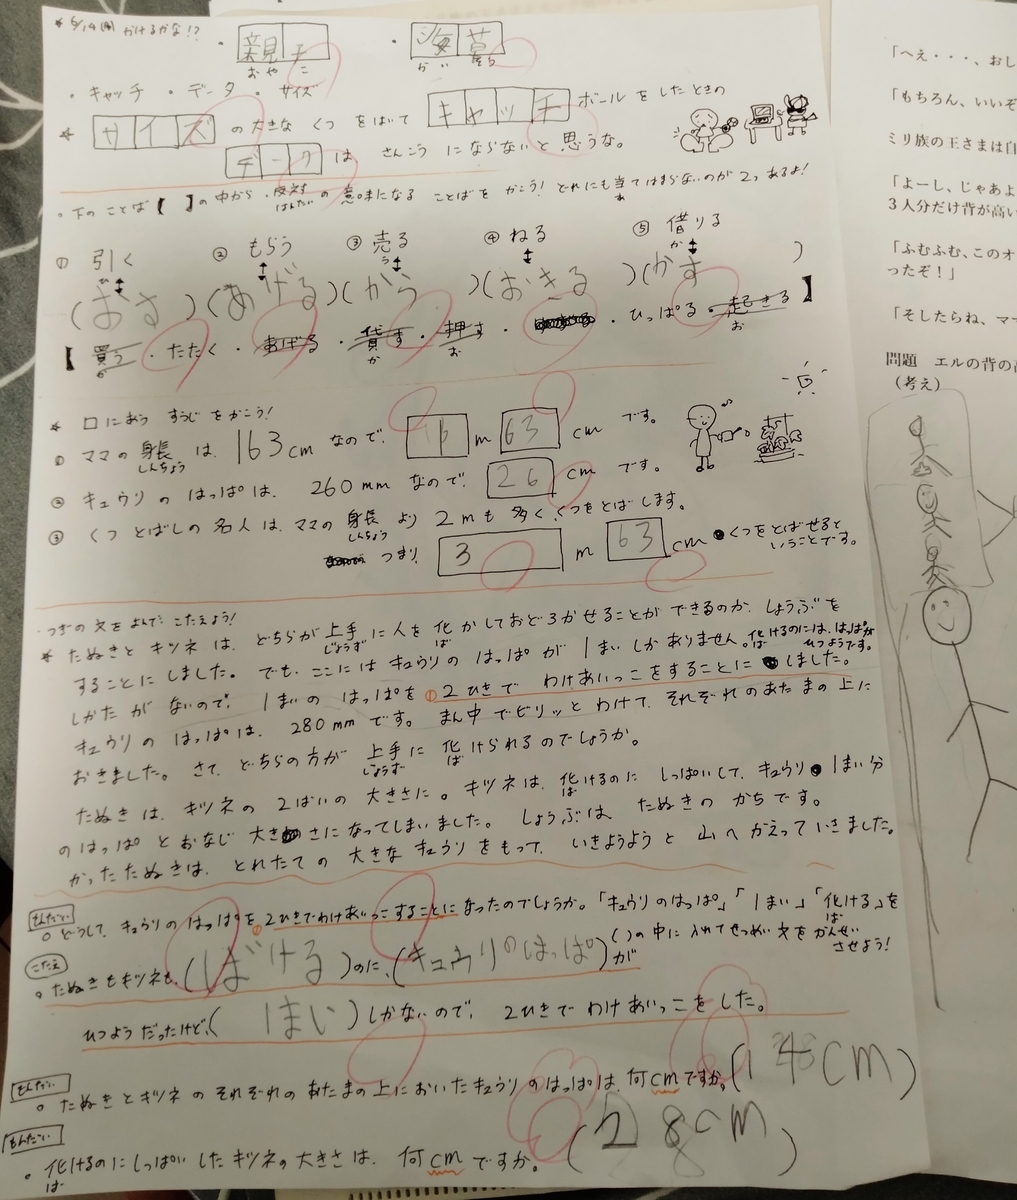 * 5/14(月) かけるかな!?
・親子
おや こ
・海草
かい そう
・キャッチ ・データ ・サイズ
* サイズ の大きな くつ をはいて キャッチ ボール をしたときの
データ は さんこう にならないと 思うな。
・下の ことば【 】の中から、反対 の 意味になる ことばを かこう! どれにも当てはまらないのが 2つあるよ!
はんたい あ
① 引く ② もらう ③ 売る ④ ねる ⑤ 借りる
ひ う か
(おす)(あげる)(かう)(おきる)(かす)
【 買う ・ たたく ・ あげる ・ 貸す ・ 押す ・ ・ ひっぱる ・ 起きる 】
か か お お
* 口にあう すうじ をかこう!
① ママの 身長 は、163cm なので、 1 m 63 cm です。
しんちょう
② キュウリ の はっぱは、 260mm なので、 26 cm です。
③ くつ とばしの 名人 は、ママの 身長 より 2mも 多く、くつをとばします。
しんちょう
つまり、 3 m 63 cm くつをとばせると
いうことです。
・つぎの文をよんで、こたえよう!
* たぬきと キツネ は、どちらが 上手 に 人を 化 かしておどろかせることが できるのか、しょうぶを
じょうず ば
することに しました。でも、ここには キュウリの はっぱ が 1まい しか ありません。化けるのには、はっぱが
ば ひつようです。
しかた がないので、 1まいの はっぱを ①2ひきで わけあいっこをすることに しました。
キュウリの はっぱは、 280mm です。 まん中 でビリッと わけて、それぞれ のあたまの上に
おきました。さて、どちらの方が 上手 に 化 けられるのでしょうか。
じょうず ば
たぬき は、キツネ の 2ばいの 大きさに。キツネは、化けるのに しっぱいして、キュウリ 1まい分
ば
のはっぱ とおなじ 大きさになってしまいました。しょうぶは、たぬきの かちです。
かったたぬきは、とれたての 大きな キュウリ をもって、いきようようと 山へ かえっていきました。
もんだい
○どうして、キュウリのはっぱを①2ひきでわけあいっこすることになったのでしょうか。「キュウリのはっぱ」「1まい」「化ける」を
ば
( )の中に 入れてせつめい文をかんせい
させよう!
こたえ
○ たぬきもキツネも、(ばける)のに、(キュウリのはっぱ)が
ひつようだったけど、( 1まい )しかないので、 2ひきで わけあいっこをした。
もんだい
○ たぬきとキツネ のそれぞれの あたまの上においたキュウリのはっぱは、何cmですか。(14cm)
もんだい
○ 化けるのにしっぱい したキツネの大きさは、 何cmですか。(28cm)
ば
「へえ・・・、おし
「もちろん、いいぞ
ミリ族の王さまは自
「よーし、じゃあよ
3人分だけ背が高い
「ふむふむ、このオ
ったぞ!」
「そしたらね、ママ
問題 エルの背の高
(考え)